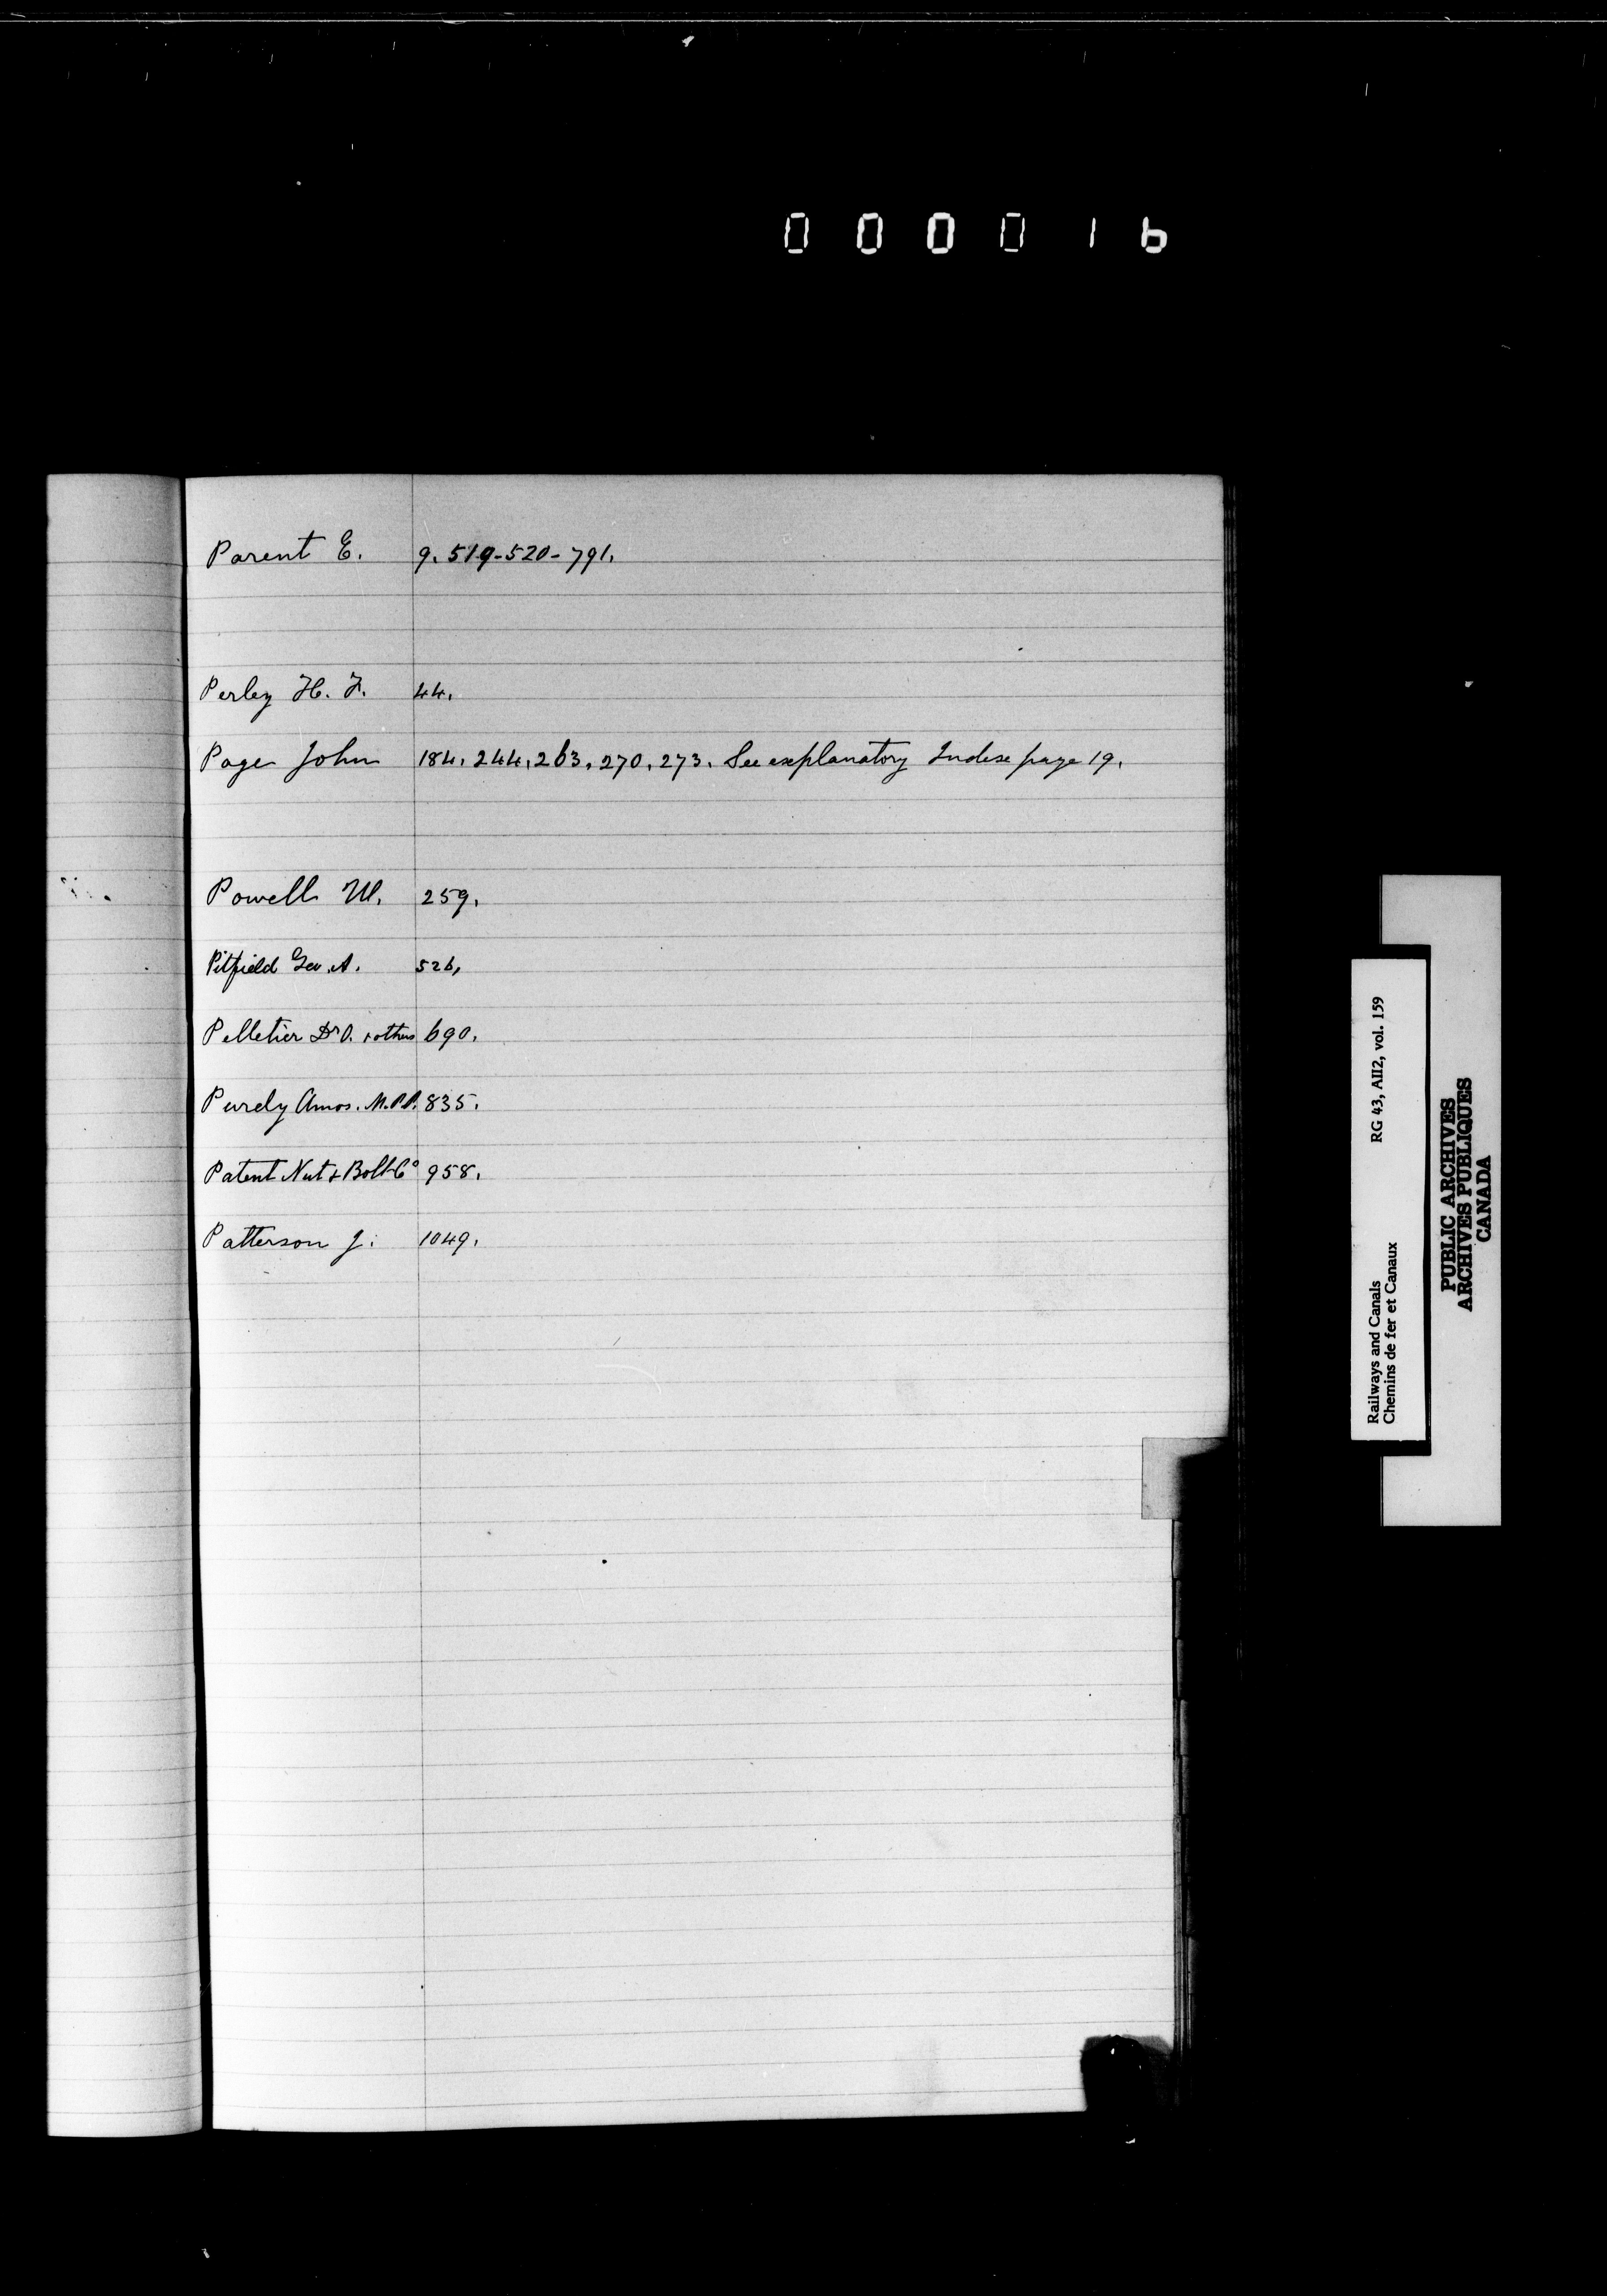 000016
Parent E. 9. 519-520-791.
Perley H. F. 44.
Page John 184, 244, 263, 270, 273. See explanatory Index page 19.
Powell W. 259.
Pitfield Geo. A. 526,
Pelletier Dr O. & others 690.
Purdy Amos. M.P.P. 835.
Patent Nut & Bolt Co 958.
Patterson J. 1049.
Railways and Canals RG 43, AII2, vol. 159
Chemins de fer et Canaux
PUBLIC ARCHIVES
ARCHIVES PUBLIQUES
CANADA